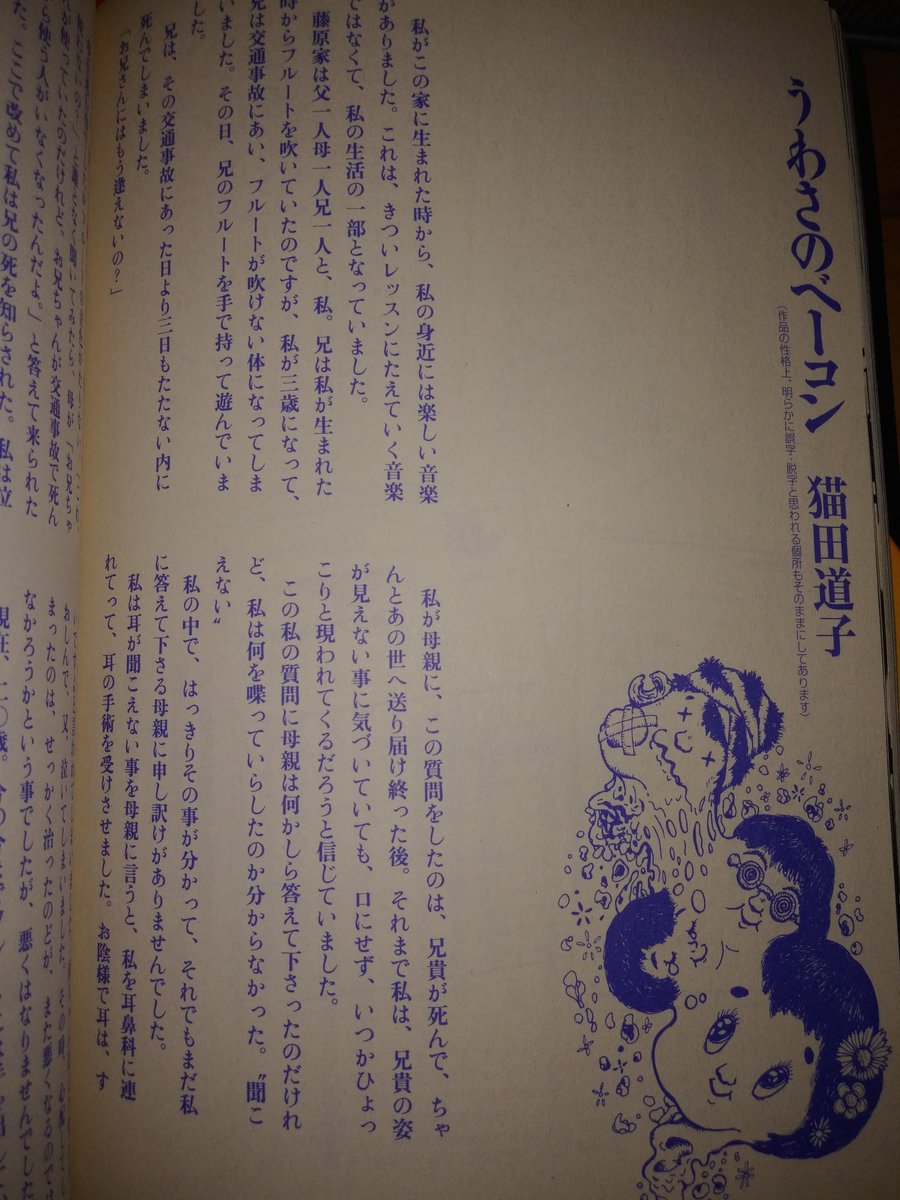 うわさのベーコン
猫田道子
(作品の性格上、明らかに誤字・脱字と思われる個所もそのままにしてあります)
私がこの家に生まれた時から、私の身近には楽しい音楽
がありました。これは、きついレッスンにたえていく音楽
ではなくて、私の生活の一部となっていました。
藤原家は父一人母一人兄一人と、私。兄は私が生まれた
時からフルートを吹いていたのですが、私が三歳になって、
兄は交通事故にあい、フルートが吹けない体になってしま
いました。その日、兄のフルートを手で持って遊んでいま
した。
兄は、その交通事故にあった日より三日もたたない内に
死んでしまいました。
「お兄さんにはもう逢えないの?」
私が母親に、この質問をしたのは、兄貴が死んで、ちゃ
んとあの世へ送り届け終った後。それまで私は、兄貴の姿
が見えない事に気づいていても、口にせず、いつかひょっ
こりと現われてくるだろうと信じていました。
この私の質問に母親は何かしら答えて下さったのだけれ
ど、私は何を喋っていらしたのか分からなかった。〝聞こ
えない〟
私の中で、はっきりその事が分かって、それでもまだ私
に答えて下さる母親に申し訳けがありませんでした。
私は耳が聞こえない事を母親に言うと、私を耳鼻科に連
れてって、耳の手術を受けさせました。お陰様で耳は、す
も使っていたのだけれど、お兄ちゃんが交通事故で死ん
ら使う人がいなくなったんだよ。」と答えて来られた
た。ここで改めて私は兄の死を知らされた。私は泣
おしんで、又、泣いてしまいました。その時、心配し
まったのは、せっかく治ったのどが、また悪くなるのでは
なかろうかという事でしたが、悪くはなりませんでした
現在、二〇歳。